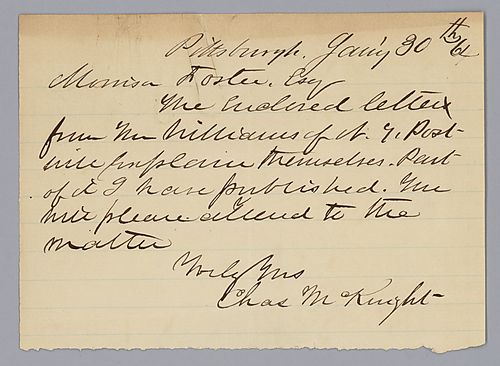 Pittsburgh. Jan'y 30th/61
Morrison Foster, Esq
The Enclosed letters
from Mr Williams of N. Y. Post-
will Explain themselves. Part
of it I have published. You
will please attend to the
matter
Yrs
Chas McKnight